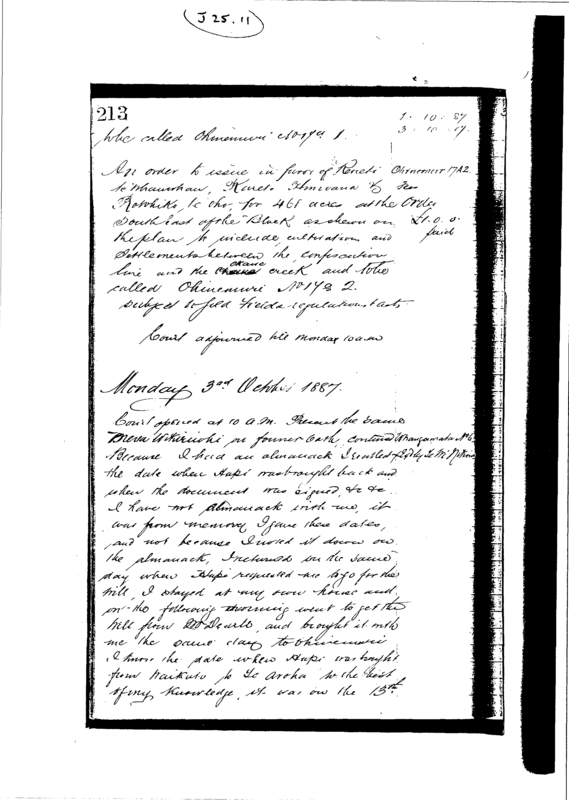 J 25. 11
213
1 - 10 - 87
3 - 10 - 87
to be called Ohinemuri No 17A 1.
An order to issue in favor of Kereti Ohinemuri 17A2
to &c for 461 acres at the Order
South East of the Block as shewn on £1. 0. 0.
the plan to include cultivations and paid
Settlements between the confiscation
line and the creek and to be
called Ohinemuri No 17 2.
subject to Gold Fields regulations & acts
Court adjourned till Monday 10 am
Monday 3rd October 1887.
Court opened at 10 A.M. Present the same
on former oath, continued Whangamata No 6
Because I had an almanack I
the date when Hapi was brought back and
when the document was signed, &c &c.
I have not almanack with me, it
was from memory I gave these dates,
and not because I noted it down on
the almanack, I returned on the same
day when Hapi requested me to go for the
will, I stayed at my own house and,
on the following morning went to get the
will from and brought it with
me the same day to Ohinemuri
I know the date when Hapi was brought
from Waikato to Te Aroha to the best
of my knowledge, it was on the 13th.